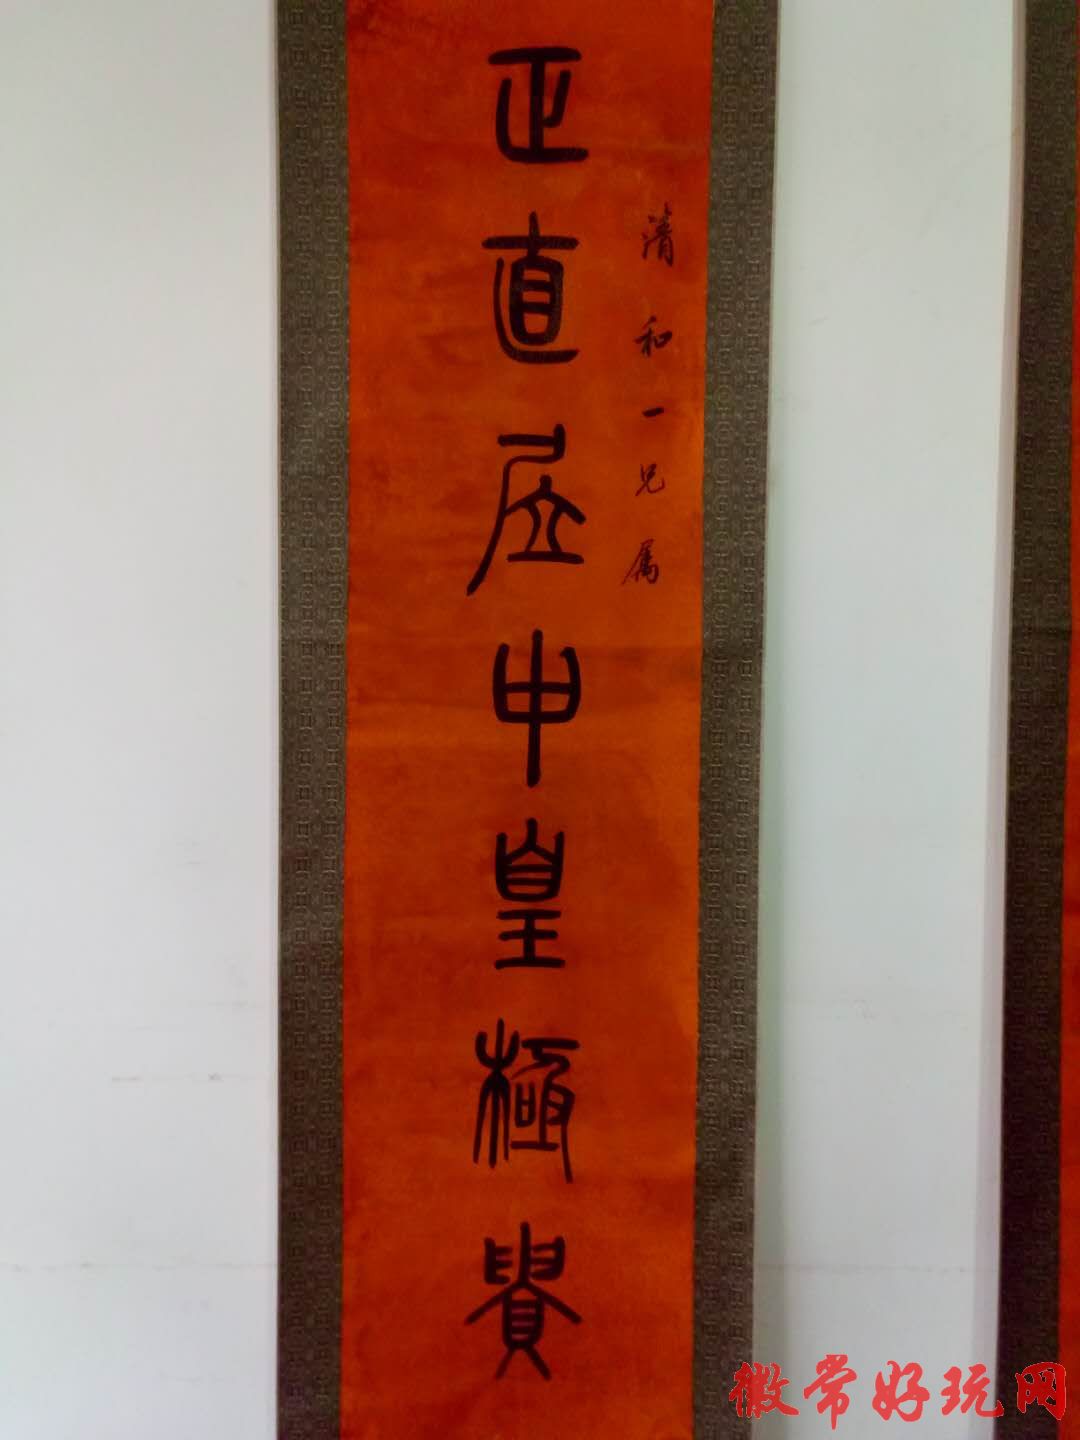 清和一兄属
正直居中皇極貴
徽常好玩网